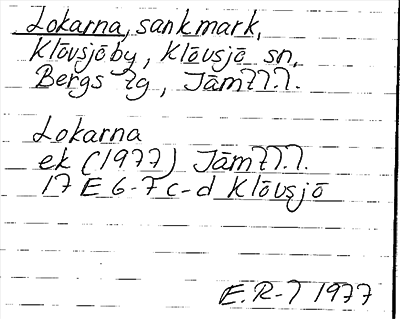 Lokarna, sankmark,
Klövsjöby, Klövsjö sn,
Bergs tg, Jämtl.
Lokarna
ek (1977) Jämtl.
17 E 6-7 c-d Klövsjö
E.R-7 1977